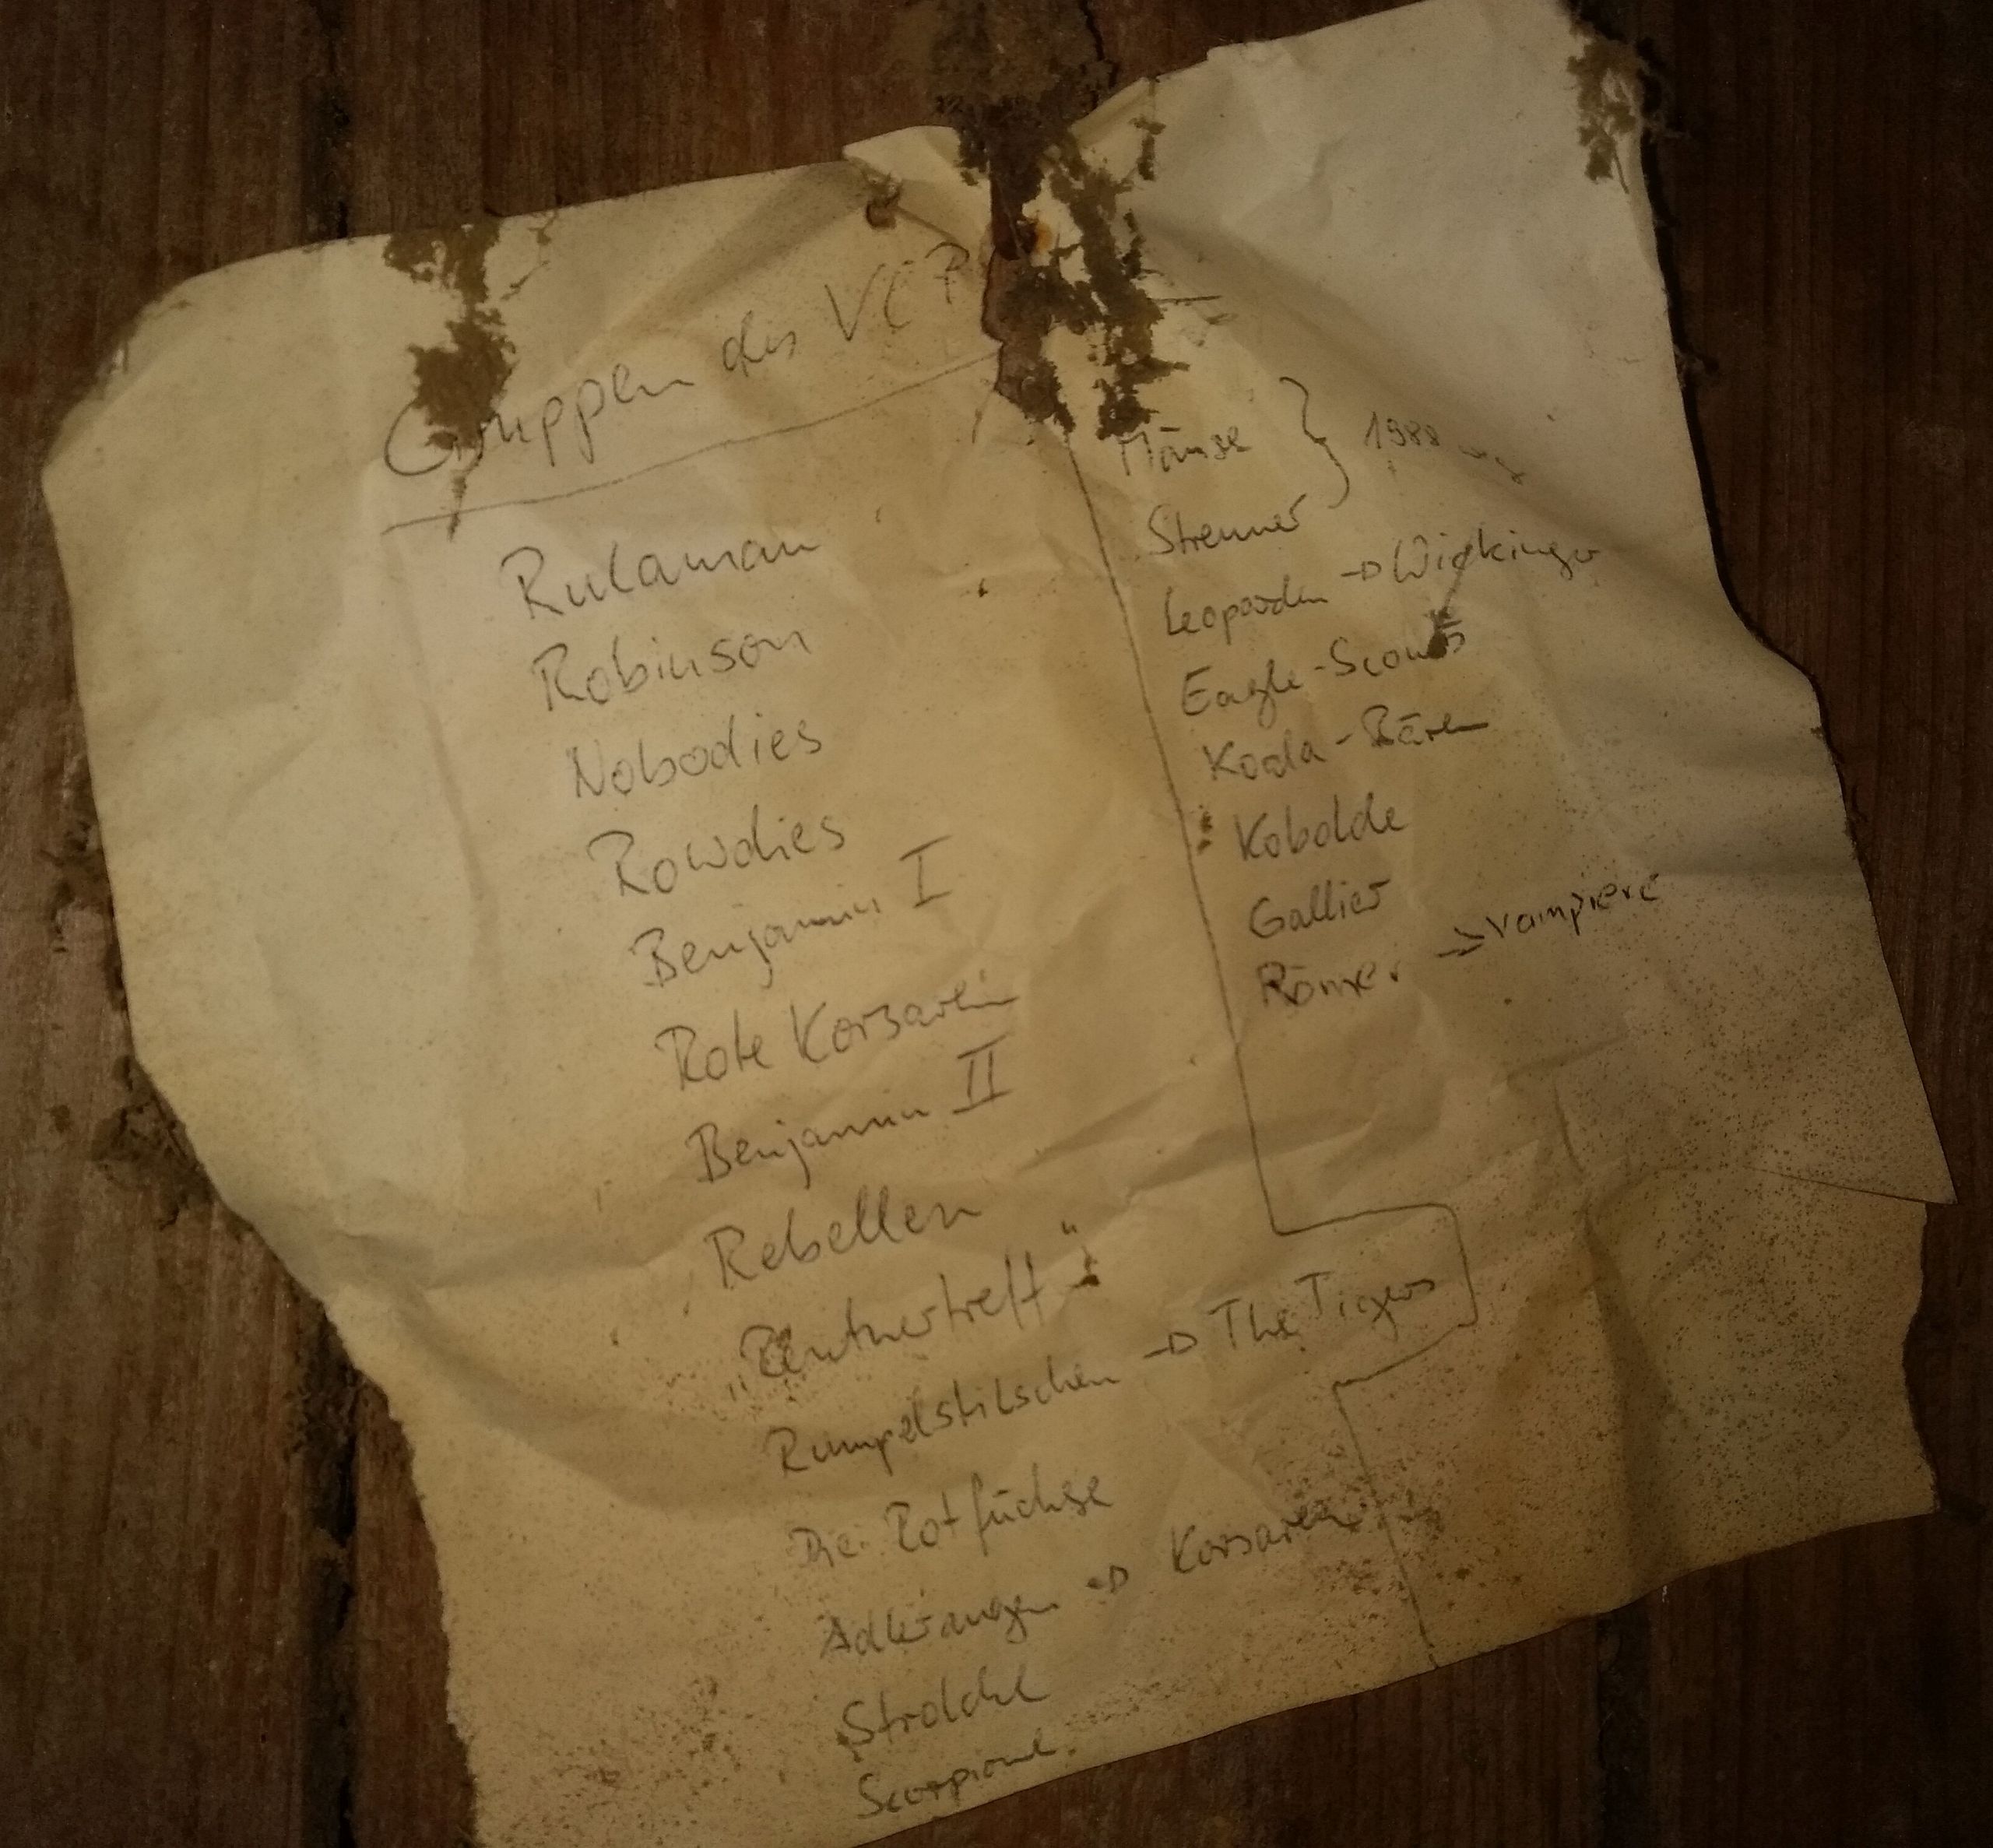 Gruppen des VCP
Rulaman
Robinson
Nobodies
Rowdies
Benjamin I
Rote Korsaren
Benjamin II
Rebellen
„Rentnertreff“
Rumpelstilschen → The Tigers
Die Rotfüchse
Adleraugen → Korsaren
Strolche
Scorpione
Mäuse
Streuner
} 1988
Leoparden → Wickinger
Eagle-Scouts
Koala-Bären
Kobolde
Gallier
Römer → Vampiere